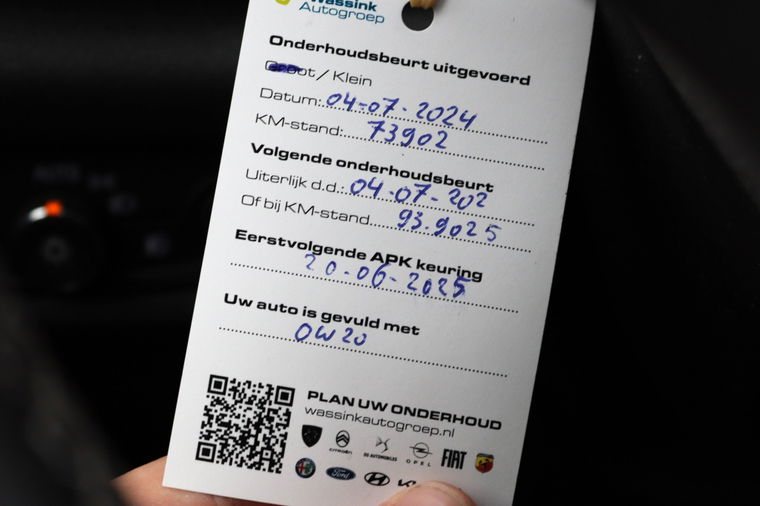 Wassink
Autogroep
Onderhoudsbeurt uitgevoerd
Groot / Klein
Datum: 04-07-2024
KM-stand: 73902
Volgende onderhoudsbeurt
Uiterlijk d.d.: 04-07-202
Of bij KM-stand 93.9025
Eerstvolgende APK keuring
20-06-2025
Uw auto is gevuld met
OW20
PLAN UW ONDERHOUD
wassinkautogroep.nl
CITROËN
DS AUTOMOBILES
OPEL
FIAT
Ford